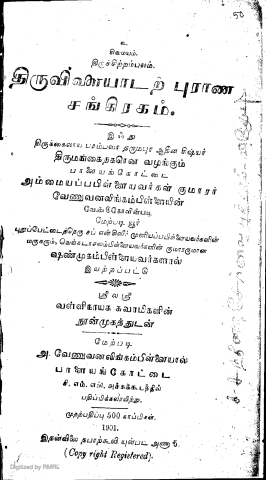 உ
சிவமயம்.
திருச்சிற்றம்பலம்.
திருவிளையாடற் புராண
சங்கிரகம்.
இஃது
திருக்கைலாய பரம்பரை தருமபுர ஆதீன சிஷ்யர்
திருமங்கைநகரென வழங்கும்
பாளையங்கோட்டை
அம்மையப்பபிள்ளையவர்கள் குமாரர்
வேணுவனலிங்கம்பிள்ளையின்
வேண்டுகோளின்படி
மேற்படி யூர்
மருகரும், வெங்கடாசலம்பிள்ளையவர்களின் குமாரருமான
ஷண்முகம்பிள்ளையவர்களால்
இயற்றப்பட்டு
ஸ்ரீலஸ்ரீ
வள்ளிநாயக சுவாமிகளின்
நூன்முகத்துடன்
மேற்படி
அ. வேணுவனலிங்கம்பிள்ளையால்
பாளையங்கோட்டை
சி. எம். எஸ். அச்சுக்கூடத்தில்
பதிப்பிக்கலாயிற்று.
முதற்பதிப்பு 500 காப்பிகள்.
1901.
இதன்விலை தபாற்கூலி யுள்பட அணா 6.
(Copy right Registered).
Digitized by RMRL
50